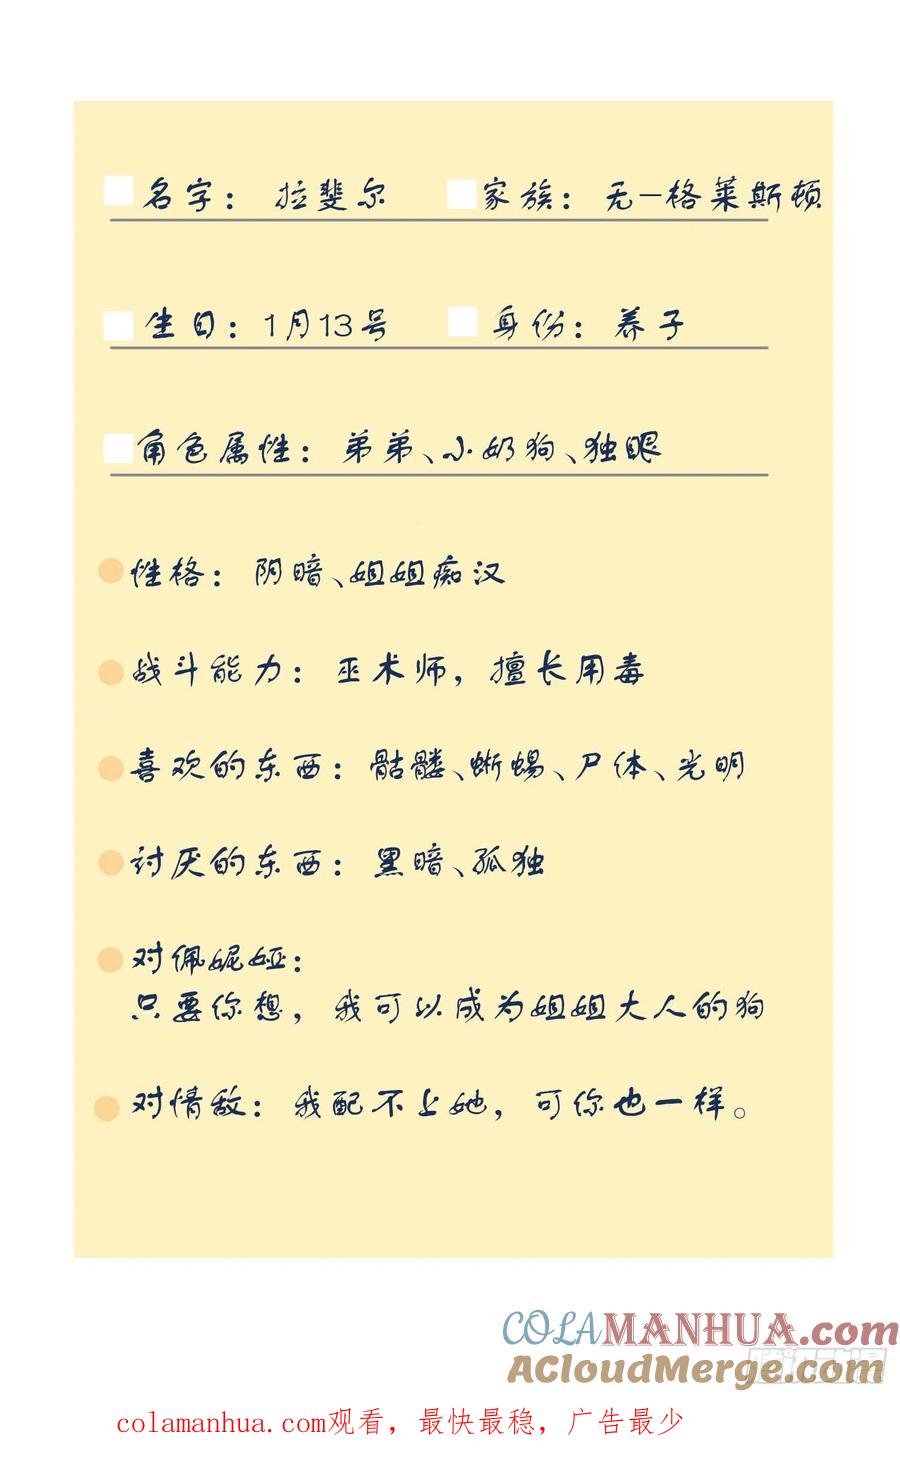 名字： 拉斐尔 家族： 无—格莱斯顿
生日：1月13号 身份： 养子
角色属性： 弟弟、小奶狗、独眼
性格： 阴暗、姐姐痴汉
战斗能力： 巫术师，擅长用毒
喜欢的东西：骷髅、蜥蜴、尸体、光明
讨厌的东西： 黑暗、孤独
对佩妮娅：
只要你想，我可以成为姐姐大人的狗
对情敌：我配不上她，可你也一样。
COLAMANHUA.com
ACloudMerge.com
colamanhua.com观看，最快最稳，广告最少